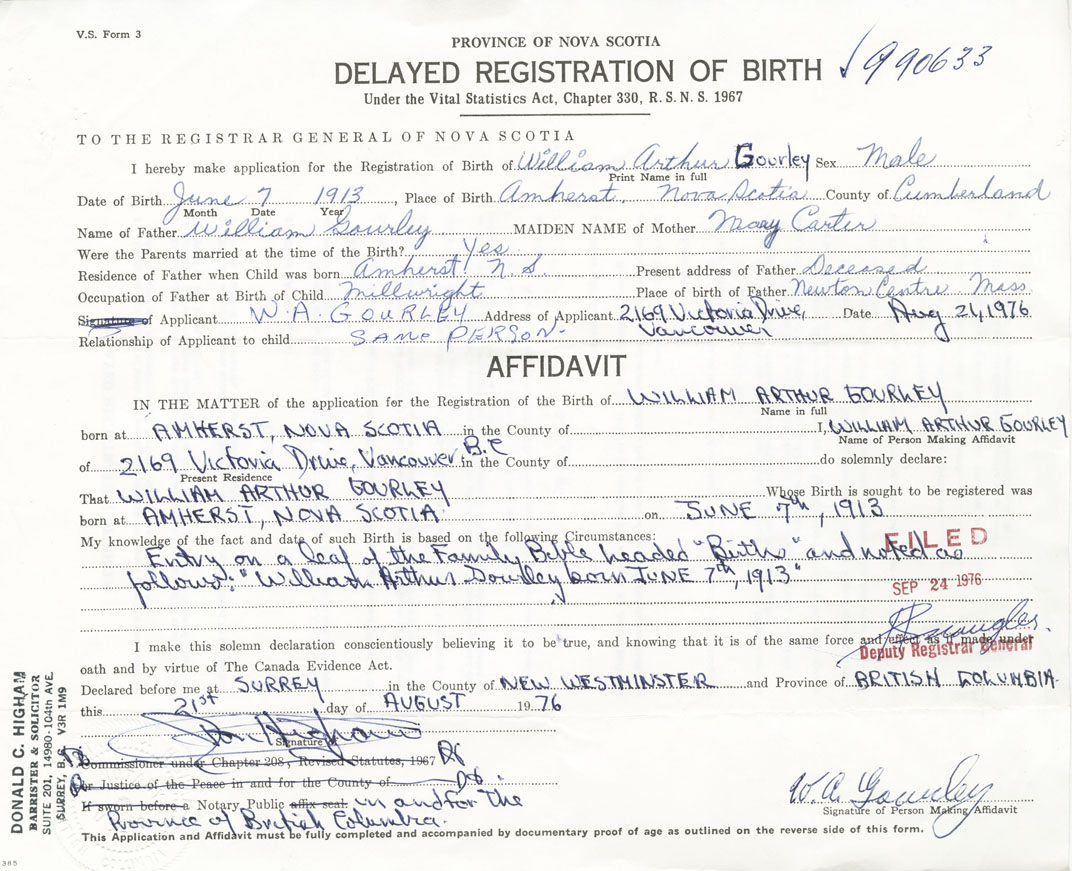 V.S. Form 3
PROVINCE OF NOVA SCOTIA
DELAYED REGISTRATION OF BIRTH
990633
Under the Vital Statistics Act, Chapter 330, R. S. N. S. 1967
TO THE REGISTRAR GENERAL OF NOVA SCOTIA
I hereby make application for the Registration of Birth of William Arthur Gourley Sex Male
Print Name in full
Date of Birth June 7 1913, Place of Birth Amherst, Nova Scotia County of Cumberland
Month Date Year
Name of Father William Gourley MAIDEN NAME of Mother Mary Carter
Were the Parents married at the time of the Birth? Yes
Residence of Father when Child was born Amherst N.S. Present address of Father Deceased
Occupation of Father at Birth of Child Millwright Place of birth of Father Newton Centre Mass.
Signature of Applicant W. A. GOURLEY Address of Applicant 2169 Victoria Drive, Date Aug 21, 1976
Vancouver
Relationship of Applicant to child SAME PERSON
AFFIDAVIT
IN THE MATTER of the application for the Registration of the Birth of WILLIAM ARTHUR GOURLEY
Name in full
born at AMHERST, NOVA SCOTIA in the County of I, WILLIAM ARTHUR GOURLEY
Name of Person Making Affidavit
of 2169 Victoria Drive, Vancouver B.C in the County of do solemnly declare:
Present Residence
That WILLIAM ARTHUR GOURLEY Whose Birth is sought to be registered was
born at AMHERST, NOVA SCOTIA on JUNE 7th, 1913
My knowledge of the fact and date of such Birth is based on the following Circumstances:
Entry on a leaf of the Family Bible headed "Births" and noted as
follows: "William Arthur Gourley born JUNE 7th, 1913"
FILED
SEP 24 1976
I make this solemn declaration conscientiously believing it to be true, and knowing that it is of the same force and effect as if made under
Deputy Registrar General
oath and by virtue of The Canada Evidence Act.
Declared before me at SURREY in the County of NEW WESTMINSTER and Province of BRITISH COLUMBIA.
this 21st day of AUGUST 1976
Signature
Commissioner under Chapter 208, Revised Statutes, 1967
Or Justice of the Peace in and for the County of
If sworn before a Notary Public affix seal. in and for the
Province of British Columbia.
W. A. Gourley
Signature of Person Making Affidavit
This Application and Affidavit must be fully completed and accompanied by documentary proof of age as outlined on the reverse side of this form.
DONALD C. HIGHAM
BARRISTER & SOLICITOR
SUITE 201, 14980-104th AVE.
SURREY, B.C. V3R 1M9
385